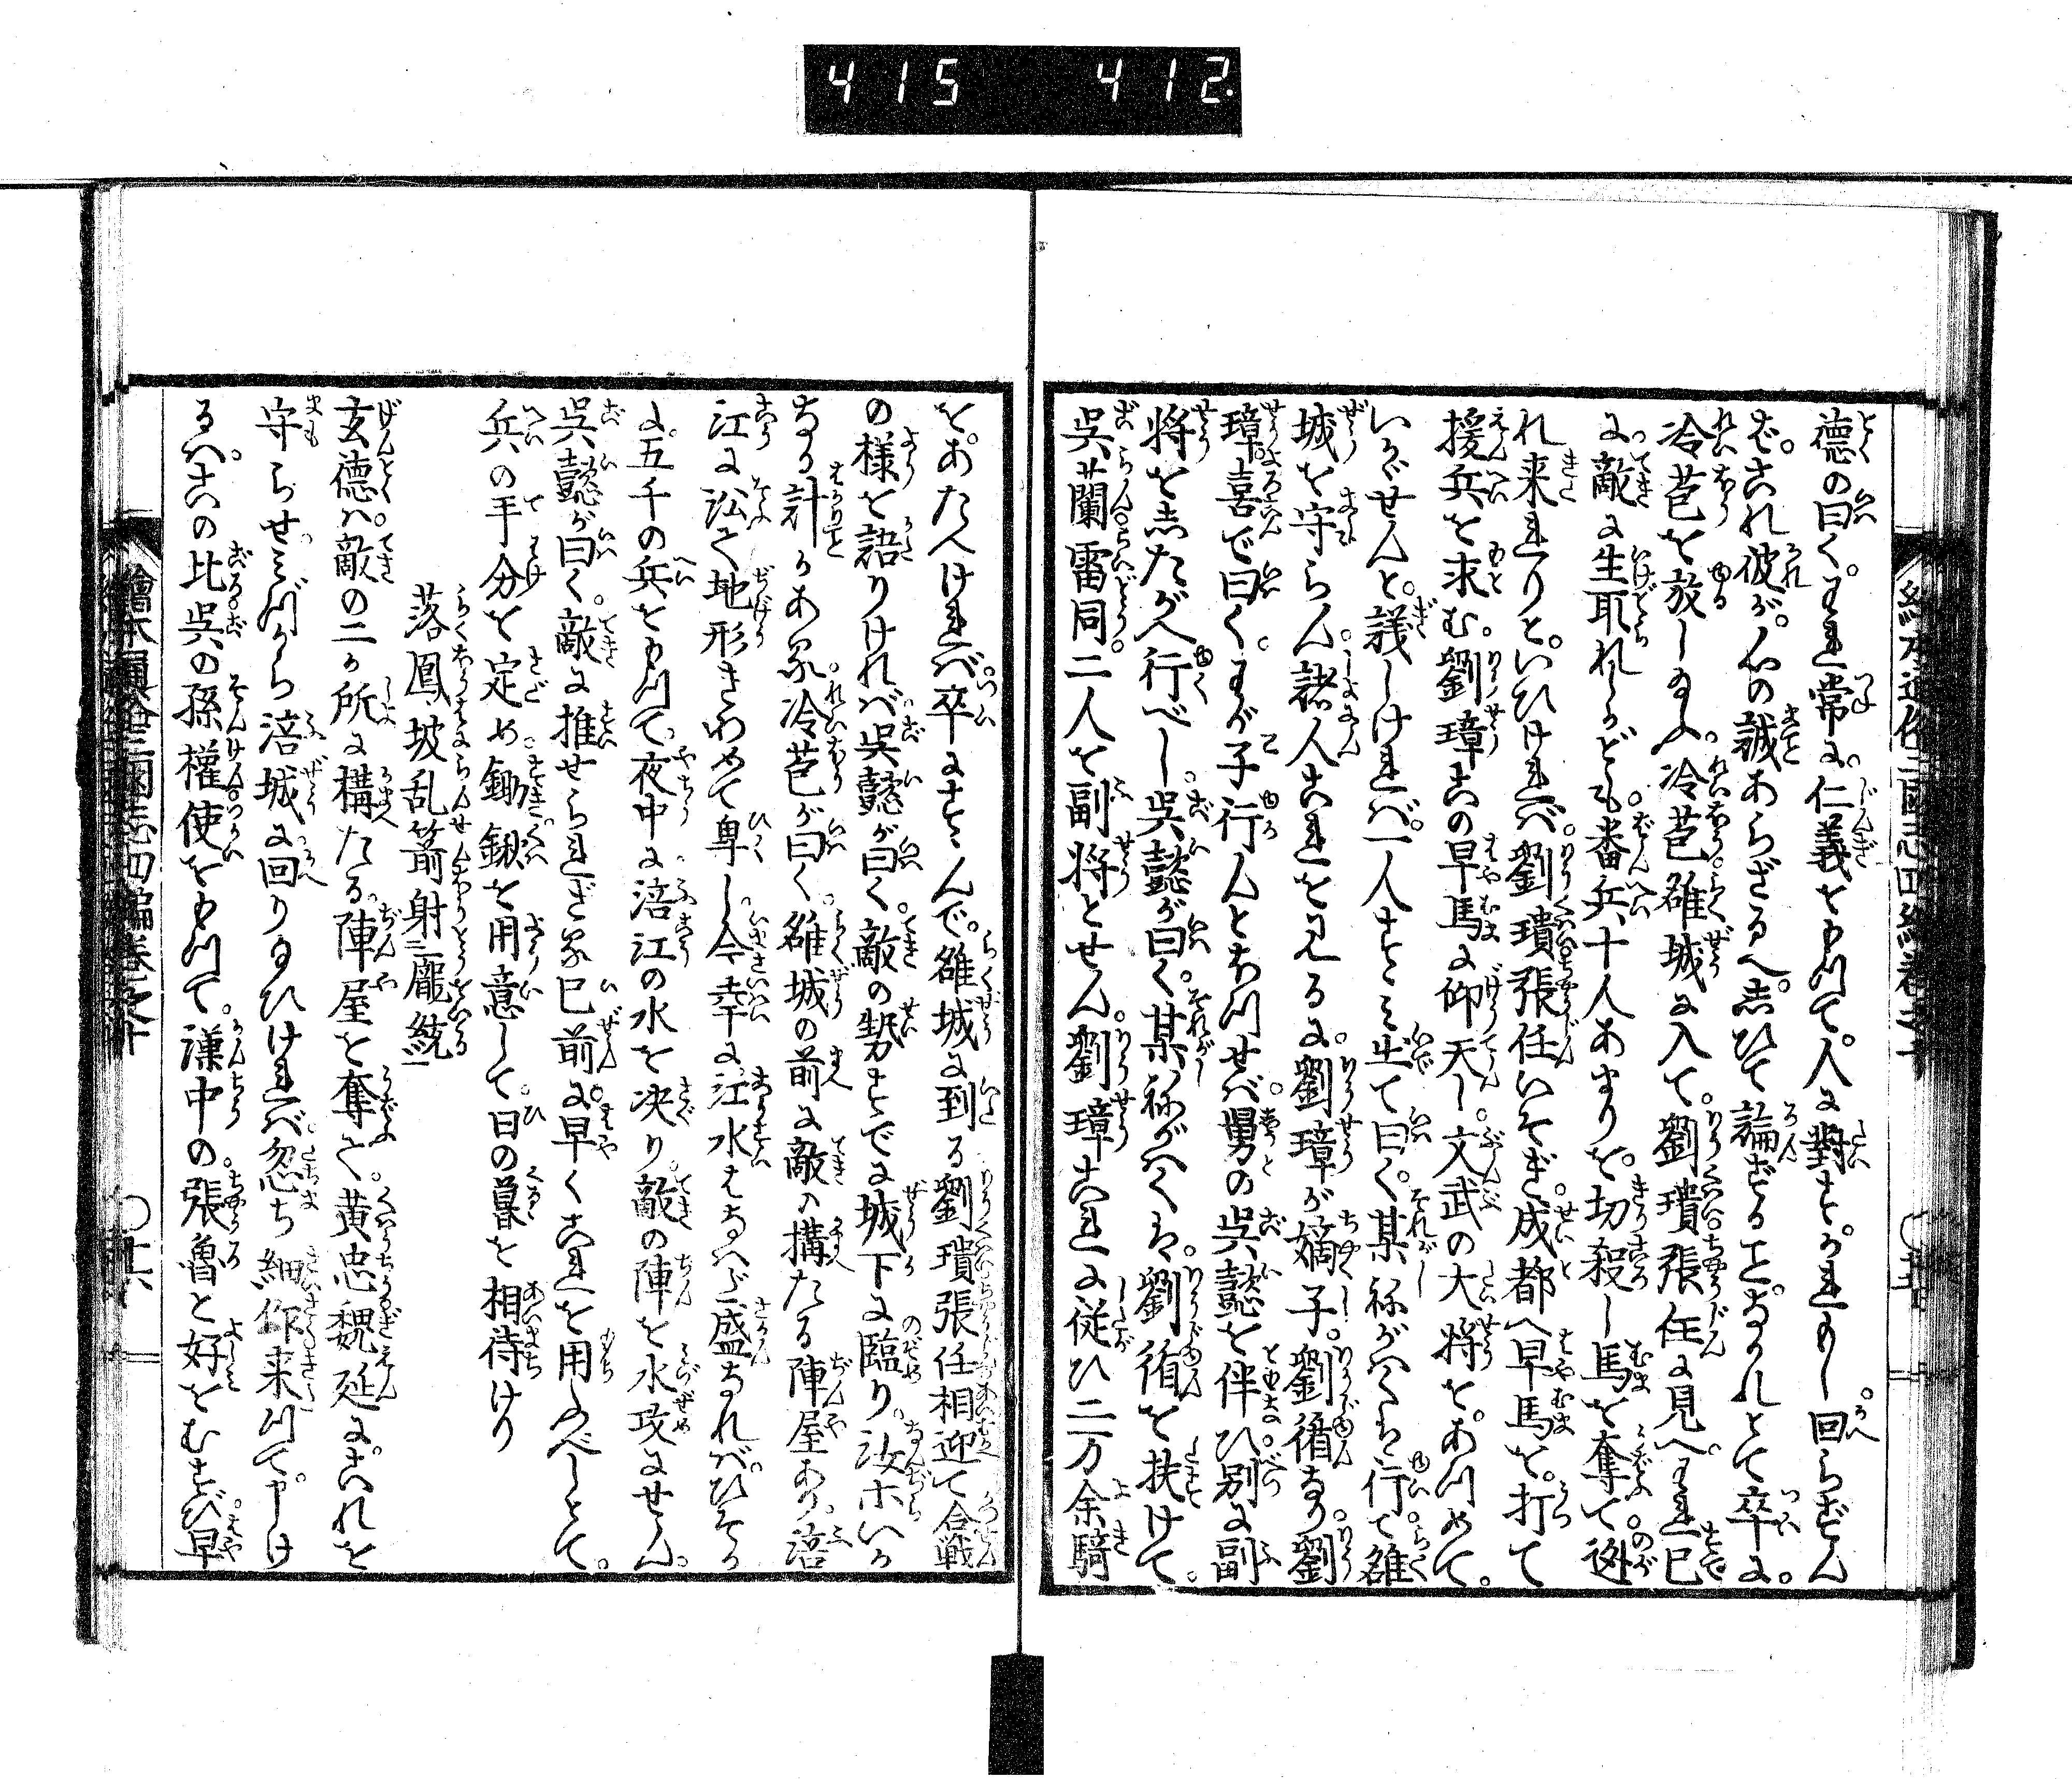 415 412
德の曰く。われ常に。仁義をもつて。人に對す。かれもし回らずん
ば。これ彼が。心の誠あらざるへ。しひて論ずることなかれとて卒に。
冷苞を放しるふ。冷苞雒城に入て。劉璝張任に見へ。われ已
に敵に生取れしが。ども番兵。十人あまりを。切殺し馬を奪て迯
れ来れりと。いひければ。劉璝張任いそぎ。成都へ早馬を。打て
援兵を求む。劉璋この早馬に仰天し。文武の大将を。あつめて。
いかゞせんと。議しければ。一人すゝみ出て曰く。某祢がはくは行て雒
城を守らん。諸人これを見るに。劉璋が嫡子。劉循なり。劉
璋。喜で曰く。わが子行んとおつせば。舅の呉懿を伴ひ別に副
将をしたがへ行べし。呉懿が曰く。某祢がへくは。劉循を扶けて。
呉蘭雷同。二人を副将とせん。劉璋これに従ひ二万余騎
をあたへければ。卒にすゝんで。雒城に到る劉璝張任相迎て合戦
の様を語りければ呉懿が曰く。敵の勢すでに城下に臨り。汝ホいか
なる計かある。冷苞が曰く。雒城の前に敵の構たる陣屋あり。涪
江に沿て地形きわめて卑し。今幸に。江水はなへだ盛なれば。ひそか
に。五千の兵をもつて。夜中に涪江の水を决り。敵の陣を水攻にせん。
呉懿が曰く。敵に推せられざる已前に。早くこれを用ふべしとて。
兵の手分を定め。鋤鍬を用意して。日の暮を相待けり
落鳳坡乱箭射二龐統一
玄德ハ。敵の二ケ所に構たる。陣屋を奪て。黄忠魏延に。これを
守らせ。みづから涪城に回りるひければ。忽ち細作来つて。申け
るハ。この比呉の孫權使をもつて。漢中の。張魯と好をむすび。早
繪本通俗三國志四編卷之十
繪本通俗三國志四編卷之十
〇十六